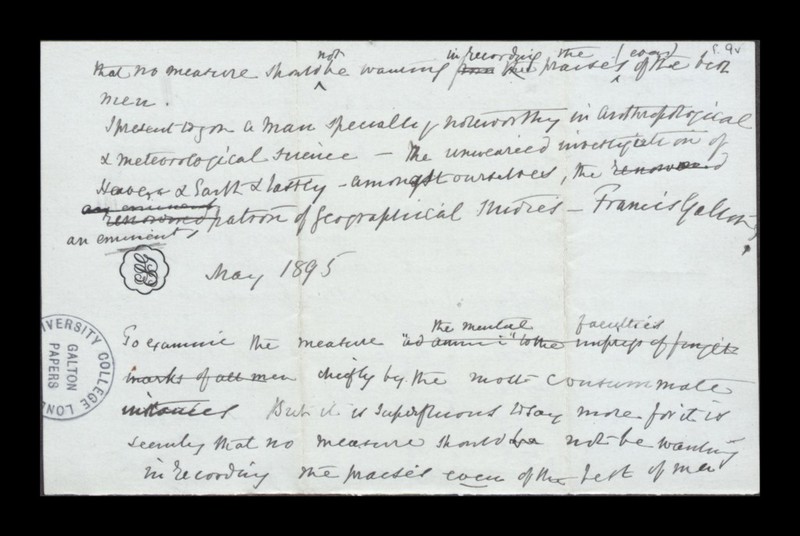 f. 9v
that no measure should not be wanting in recording the praises (even) of the best
men.
I present to you a man specially noteworthy in Anthropological
& meteorological science — The unwearied investigation of
Heavens & Earth & lastly — amongst ourselves, the renowned
an eminent
renowned patron of Geographical Studies — Francis Galton,
an eminent
May 1895
UNIVERSITY COLLEGE LONDON
GALTON
PAPERS
the mental faculties
To examine the measure "ad to the of
marks of all men chiefly by the most consummate
instances But it is superfluous to say more for it is
seemly that no measure should be not be wanting
in recording the praises even of the best of men